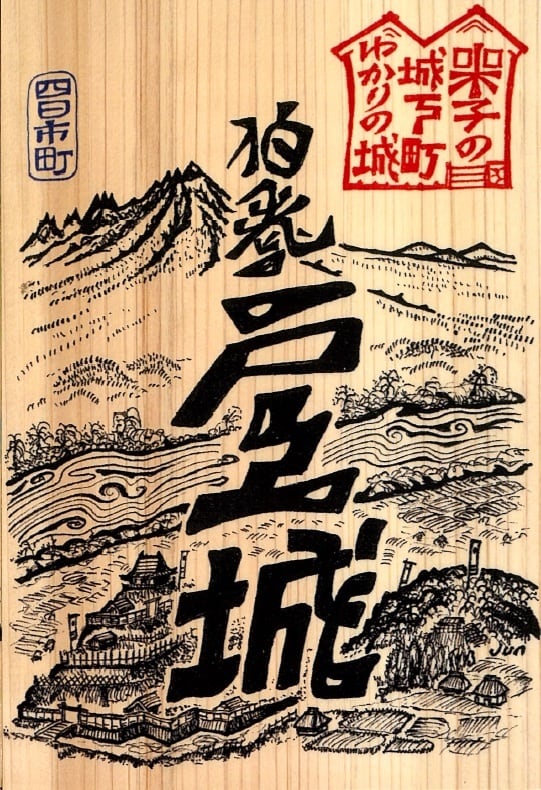 米子の
城下町
ゆかりの城
伯耆
戸上城
四日市町
Jun